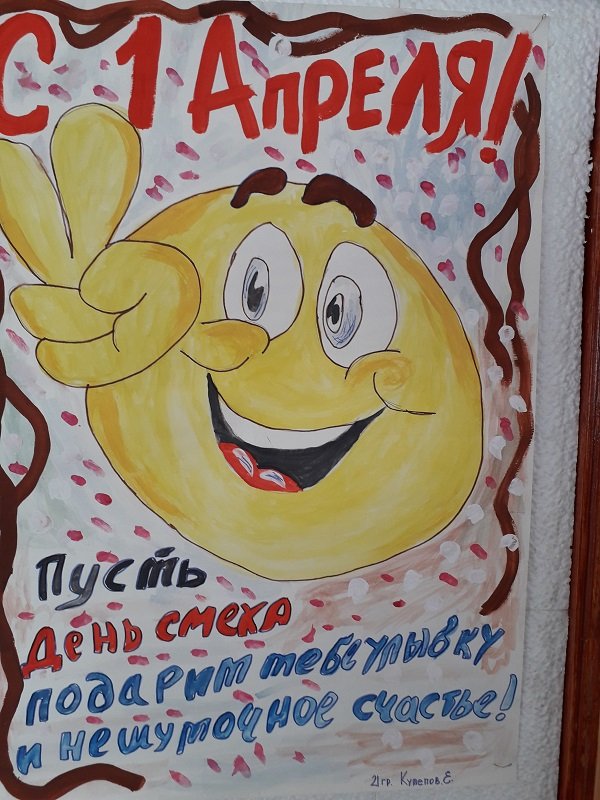 С 1 Апреля!
Пусть
День смеха
подарит тебе улыбку
и нешуточное счастье!
21гр. Кулепов.Е.